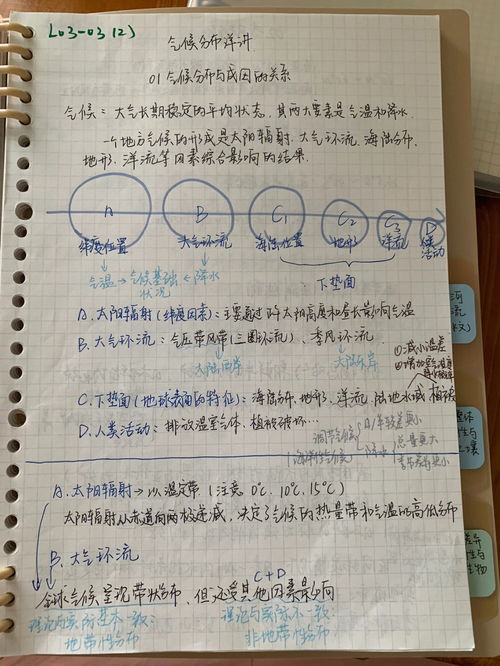 L03-03 (2)
气候分布详讲
01 气候分布与成因的关系
气候：大气长期稳定的平均状态，其两大要素是气温和降水.
一个地方气候的形成是太阳辐射、大气环流、海陆分布、
地形、洋流等因素综合影响的结果.
A B C₁ C₂ C₃ D
纬度位置 大气环流 海陆位置 地形 洋流 人类活动
气温→气候基础状况←降水
下垫面
A.太阳辐射(纬度因素)：主要通过正午太阳高度和昼长影响气温
B.大气环流：气压带风带(三圈环流)、季风环流
大陆西岸 大陆东岸
①减小温差
②增加空气湿度
C.下垫面(地球表面的特征)：海陆分布、地形、洋流、陆地水域、植被
D.人类活动：排放温室气体、植被破坏…
调节气候
(海洋性气候)
日/年较差小
降水
总量大
季节差异小
A.太阳辐射→以温定带 (注意 0℃、10℃、15℃)
太阳辐射从赤道向两极递减，决定了气候的热量带和气温的高低分布
B.大气环流
C+D
全球气候呈现带状分布，但还受其他因素影响
理论与实际基本一致：
地带性分布
理论与实际不一致：
非地带性分布
河
流
水文
整体
性与
差异
性与
生物